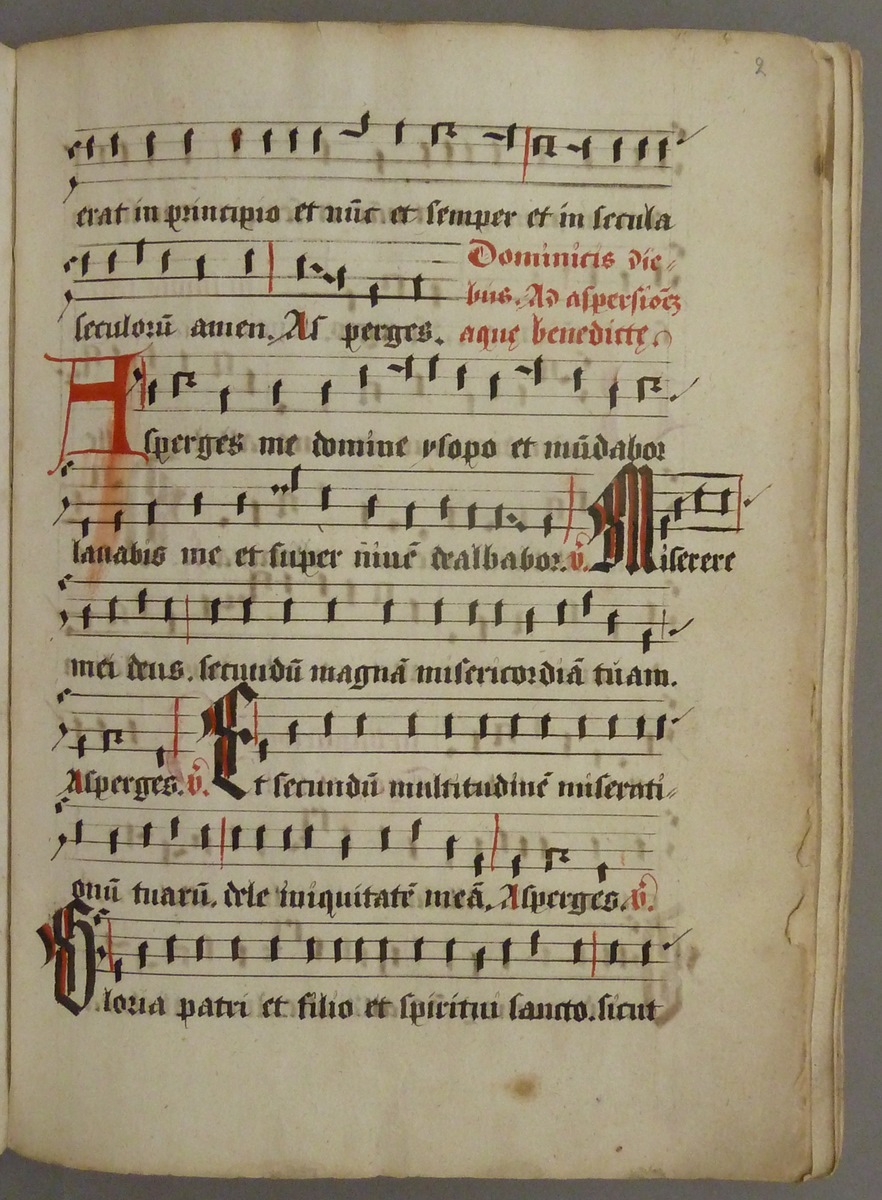 2
erat in principio et nūc et semper et in secula
seculorū amen. As perges. Dominicis die⸗
bus. Ad aspersiōēz
aquę benedictę
Asperges me domine ysopo et mūdabor
lauabis me et super niuē dealbabor. v̄. Miserere
mei deus. secundū magnā misericordiā tuam.
Asperges. v̄. Et secundū multitudinē miserati⸗
onū tuarū. dele iniquitatē meā. Asperges. v̄.
Gloria patri et filio et spiritui sancto. sicut